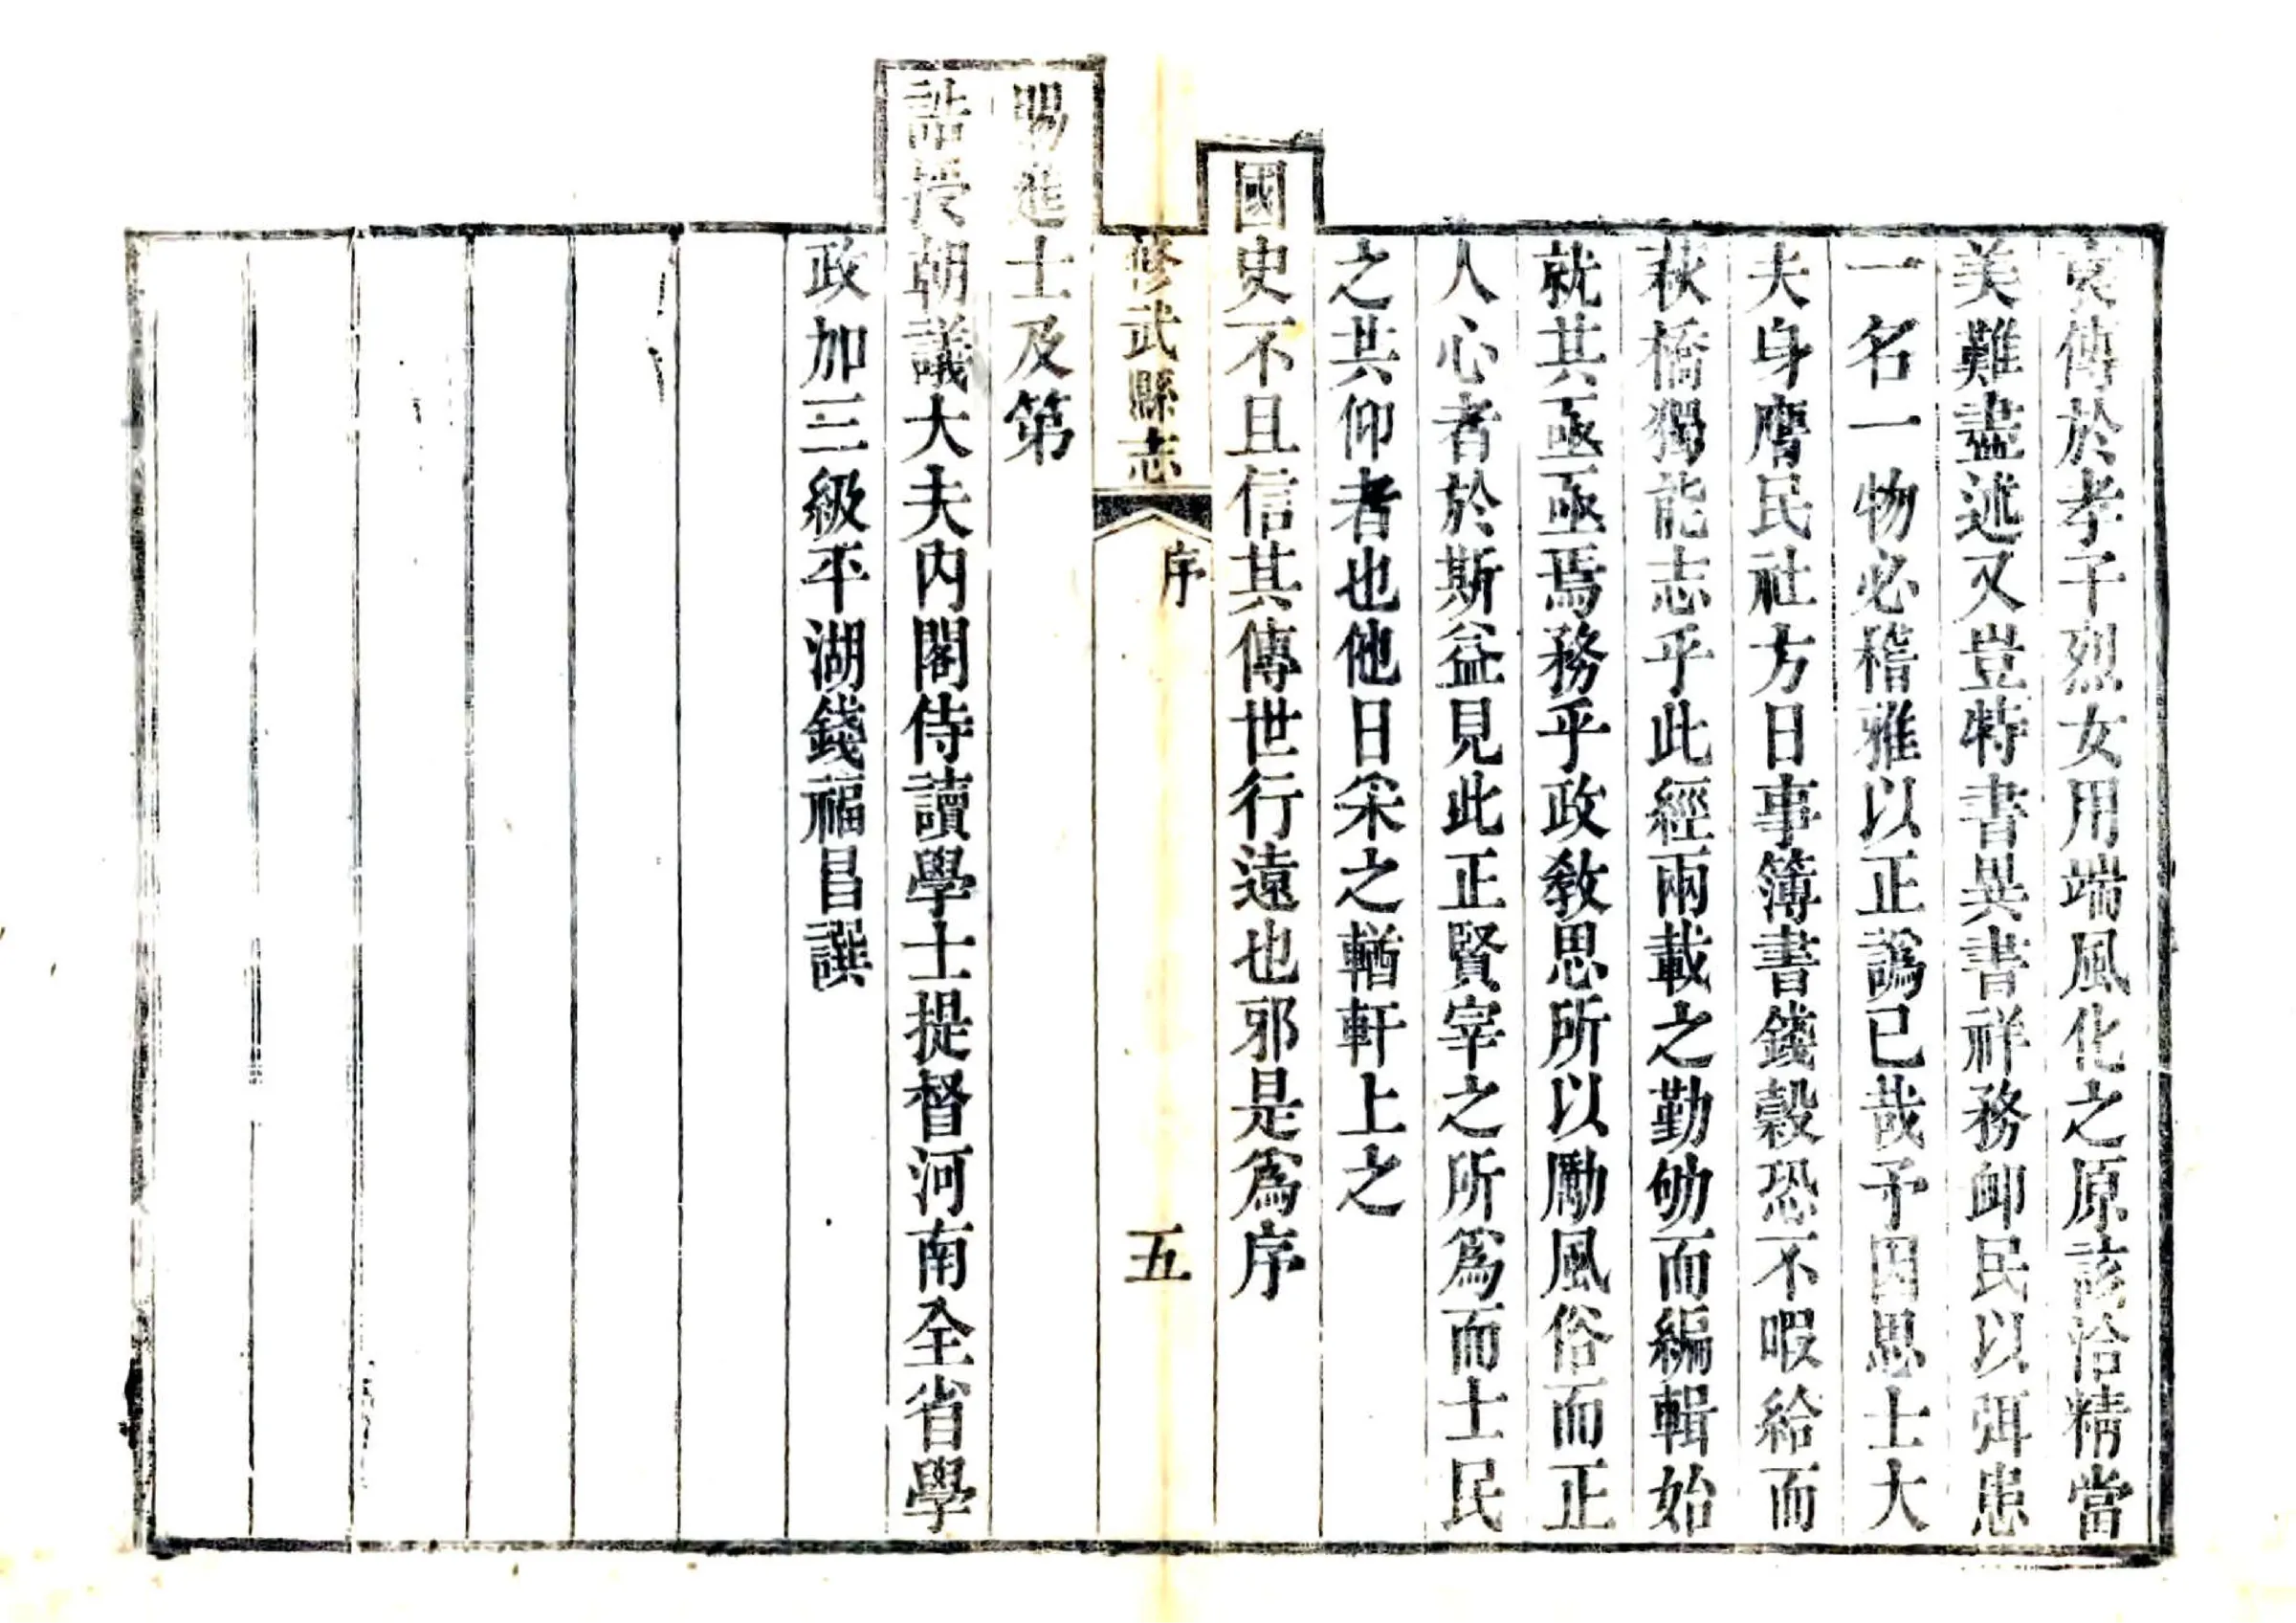 傳於孝子烈女用端風化之原該洽精當
美難盡述又豈特書異書祥務卹民以弭患
一名一物必稽雅以正譌已哉予因思士大
夫身膺民社方日事簿書錢穀恐不暇給而
萩橋獨能志乎此經兩載之勤劬而編輯始
就其亟亟焉務乎政教思所以勵風俗而正
人心者於斯益見此正賢宰之所為而士民
之共仰者也他日采之輶軒上之
國史不且信其傳世行遠也邪是為序
修武縣志
序
五
賜進士及第
誥授朝議大夫內閣侍讀學士提督河南全省學
政加三級平湖錢福昌譔